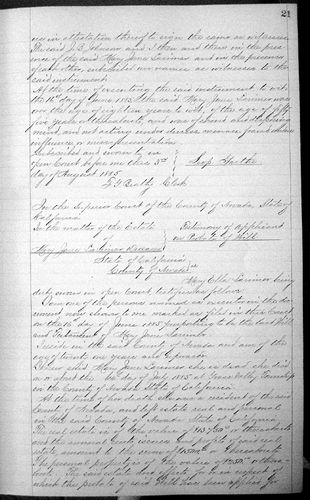 21
us in attestation thereof to sign the same as witnesses
The said J. B. Johnson and I then and there in the presence
of the said Mary Jane Larimer and in the presence
of each other, subscribed our names as witnesses to the
said instrument.
At the time of executing the said instrument to wit
the 16th day of June 1885 the said Mary Jane Larimer was
over the age of eighteen years to wit, of the age of fifty
five years or thereabouts, and was of sound and disposing
mind, and not acting under duress menace fraud undue
influence or misrepresentation.
Subscribed and sworn to in
open Court before me this 3rd
day of August 1885
Clerk
In the Superior Court of the County of Nevada State of
California
In the matter of the Estate
of
Mary Jane Larimer Deceased
Testimony of applicant
on Probate of Will
State of California
County of Nevada
Larimer being
duly sworn in open Court testifies as follows:
I am one of the persons named as in the document
now shown to me marked as filed in this Court
on the day of 1885 purporting to be the last Will
and Testament of Mary Jane Larimer
I reside in the said County of Nevada and am of the
age of twenty one years and upwards
I knew said Mary Jane Larimer she is dead she died
on or about the day of July 1885 at Grass Valley Township
in the County of Nevada State of California
At the time of her death she was a resident of the said
County of Nevada, and left estate real and personal
in the said County of Nevada State of California
The real estate is of the value of or thereabouts
and the annual rents issues and profits of said real
estate amount to the sum of or thereabouts
The personal property is of the value of or there-
abouts. The said estate and effects for or in respect of
which the probate of said Will has been applied for